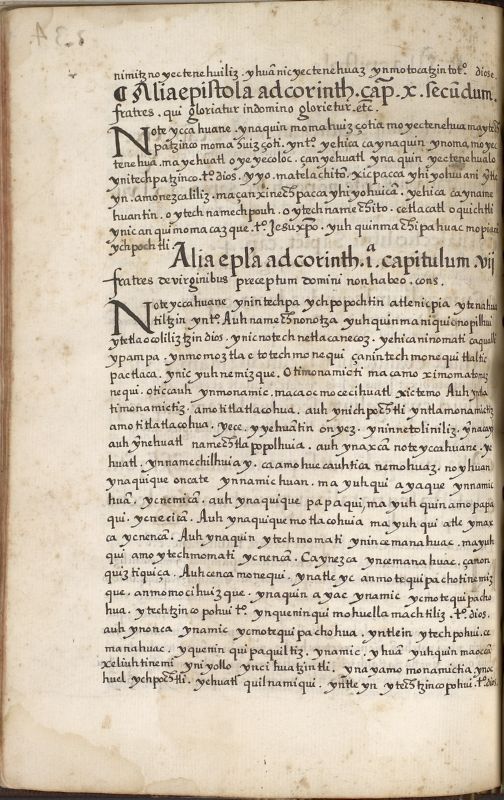 nimitznoyectenehuiliz. yhuãnicyectenehuaz ynmotocatzin totº. diose
¶ Alia epistola ad corinth. cap̃. x. secũdum.
fratres. qui gloriatur indomino glorietur. etc.
Note yccahuane. ynaquin momahuiz çotia moyectenehua maytech
patzinco momahuizçoti. yntº yehica caynaquin ynoma moyec
tenehua. ma yehuatl oyeyecoloc. çanyehuatl ynaquin yectenehualo
ynitechpatzinco. tº. dios. yyo. matelachitõ. xicpaccayhiyohuiani
yn. amonezcaliliz. maçanxinechpaccayhiyohuicã. yehica cayname
huantin. oytech namechpouh. oytechnamechito. cetlacatl oquichtli
ynicanquimomacazque. tº. Jesuxp̃o. yuhquinmachipahuac
ychpochtli.
Alia epl'a ad corinth. i.ª capitulum. vij
fratres de virginibus preceptum domini non habeo. cons.
Note yccahuane ynintechpa ychpopochtin atlenicpia ytenahua
tiltzin yntº. Auh namechnonotza yuhquinmaniqui cnopilhui
ytetlaocoliliztzin dios. ynic notech netlacanecoz. yehica ninomati caqualli
ypampa. ynmomoztlae totech monequi çanintech monequi tlaltic
pactlaca. ynic yuh nemizque. Otimonamicti macamo ximomatoca
nequi. oticcauh ynmonamic. macaocmo cecihuatl xictemo Auh
timonamictiz. amo titlatlacohua. auh ynichpochtli yntlamonamictiz
amo titlatlacohua. yece. yyehuãtin onyez. yninnetoliniliz. ynacayo
auh ynehuatl namechtlapopolhuia. auh ynaxcã note yccahuane. ye
huatl. ynnamechilhuia y. ca amo huecauhtica nemohuaz. noyhuan
ynaquique oncate ynnamichuan. ma yuhqui ayaque ynnamic
huã. ycnemicã. auh ynaquique papaqui, ma yuhquin amo papa
qui. ycnecicã. Auh ynaquique motlacohuia ma yuhqui atle ymax
ca ycnencã. Auh ynaquin ytechmomati ynincemanahuac. mayuh
qui amo ytechmomati ycnencã. Caynezca yncemanahuac, çanon
quiztiquiça. Auh cenca monequi. ynatle yc anmotequipachotinemiz
que. anmomocihuizque. ynaquin ayac ynamic ycmotequipacho
hua. ytechtzinco pohui tº. ynqueninqui mohuellamachtiliz. tº. dios.
auh ynonca ynamic ycmotequipachohua. yntlein ytechpohui. ce
manahuac. yquenin quipaquiltiz. ynamic. yhuã yuhquin maoccã
xeliuhtinemi yniyollo ynci huatzintli. ynayamo monamictia ynoc
huel ychpochtli. yehuatl quilnamiqui. yntle yn ytechtzinco pohui. tº. dios.